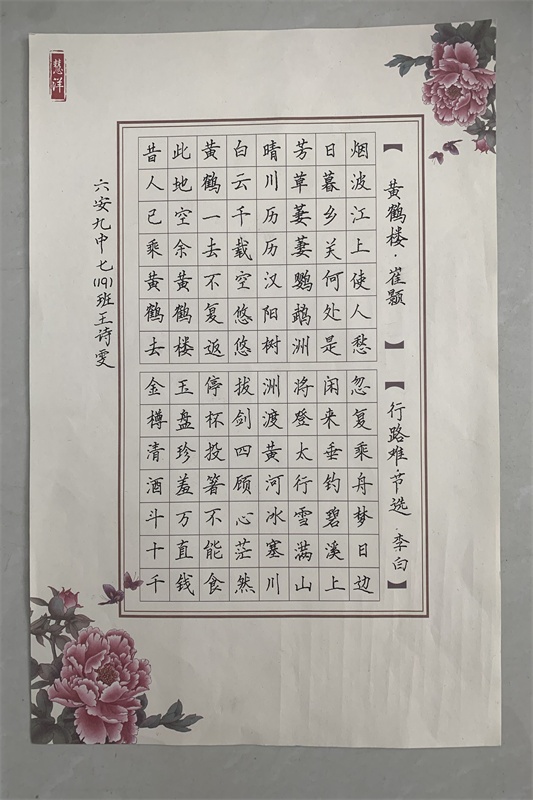 慧洋
【黄鹤楼·崔颢】
昔人已乘黄鹤去
此地空余黄鹤楼
黄鹤一去不复返
白云千载空悠悠
晴川历历汉阳树
芳草萋萋鹦鹉洲
日暮乡关何处是
烟波江上使人愁
【行路难·节选·李白】
金樽清酒斗十千
玉盘珍羞万直钱
停杯投箸不能食
拔剑四顾心茫然
洲渡黄河冰塞川
将登太行雪满山
闲来垂钓碧溪上
忽复乘舟梦日边
六安九中七(19)班王诗雯